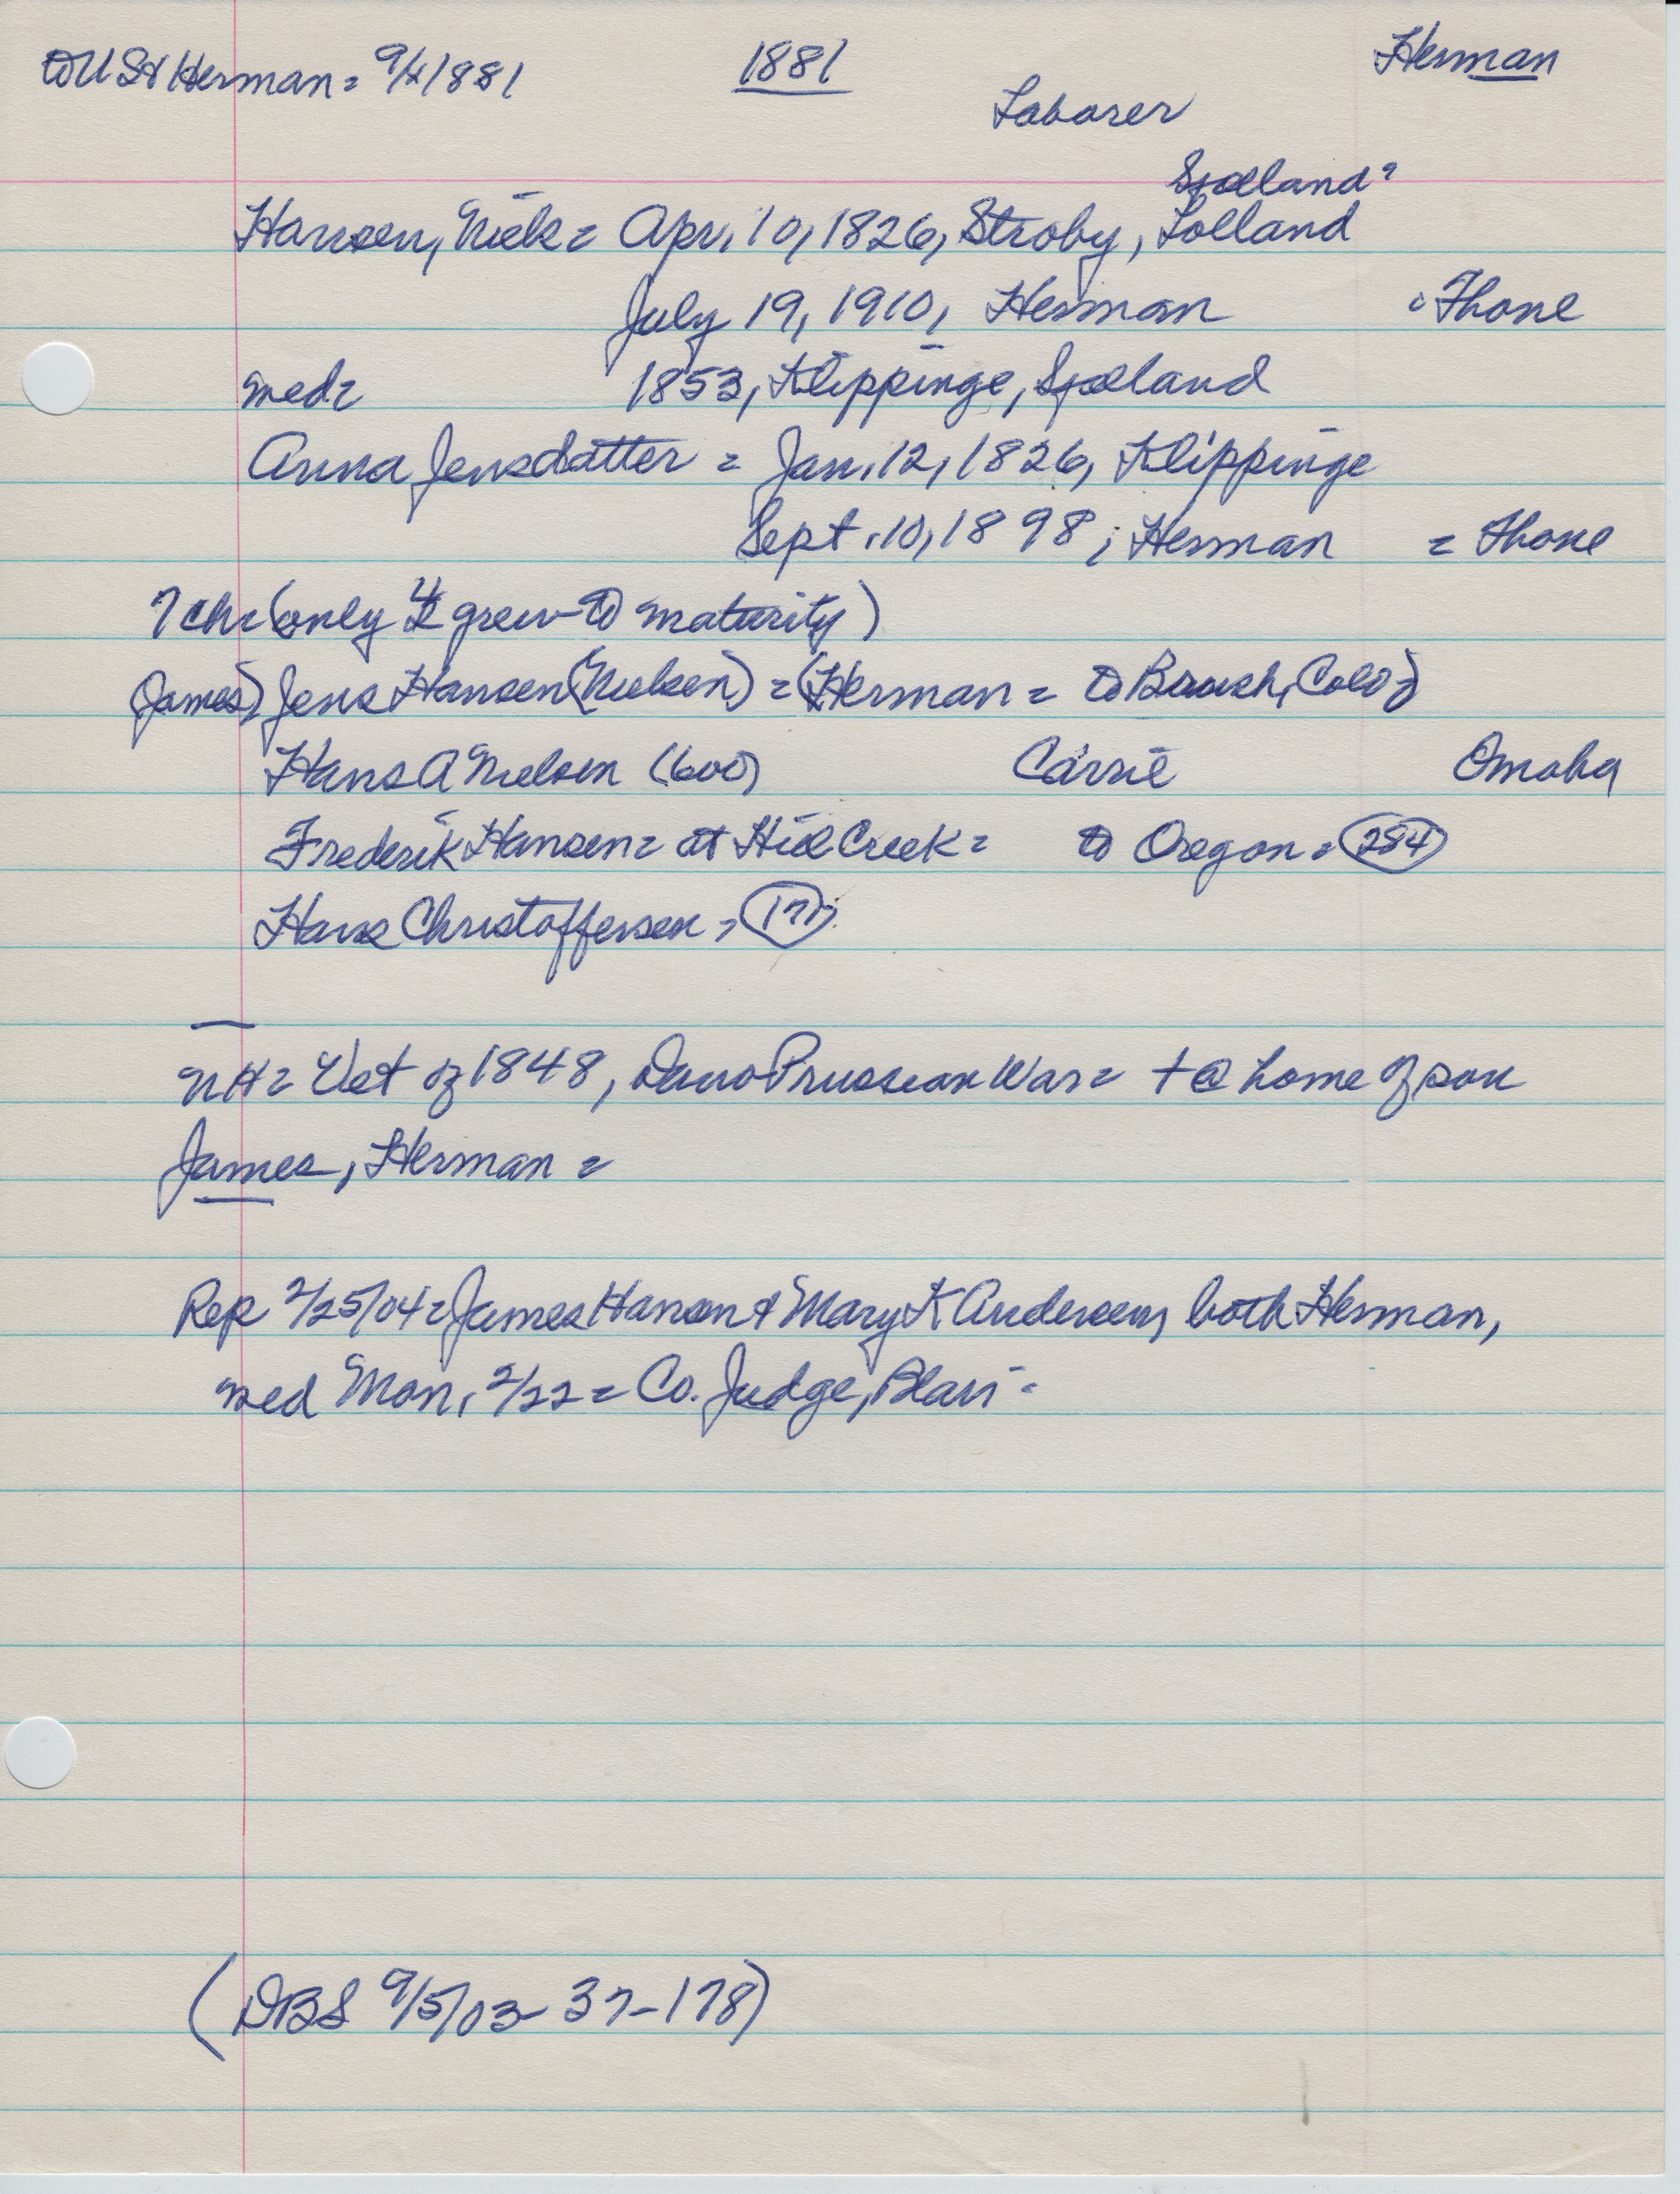 to US & Herman = 9/4/1881 1881 Herman
Laborer
Sjælland?
Hansen, Niels = Apr. 10, 1826, Stroby, Lolland
July 19, 1910, Herman = Thone
med = 1853, Klippinge, Sjælland
Anna Jensdatter = Jan. 12, 1826, Klippinge
Sept. 10, 1898; Herman = Thone
7 ch = (only 4 grew to maturity)
(James) Jens Hansen (Nielsen) = (Herman = to Brush, Colo)
Hans A Nielsen (600) Carrie Omaha
Frederik Hansen = at Hill Creek = to Oregon = 284
Hans Christoffersen = 177
NH = Vet of 1848, Dano Prussian War = + @ home of son
James, Herman =
Rep 2/25/04 = James Hansen & Mary K Andersen, both Herman,
med Mon, 2/22 = Co. Judge, Blair =
(DBS 9/5/03 - 37-178)